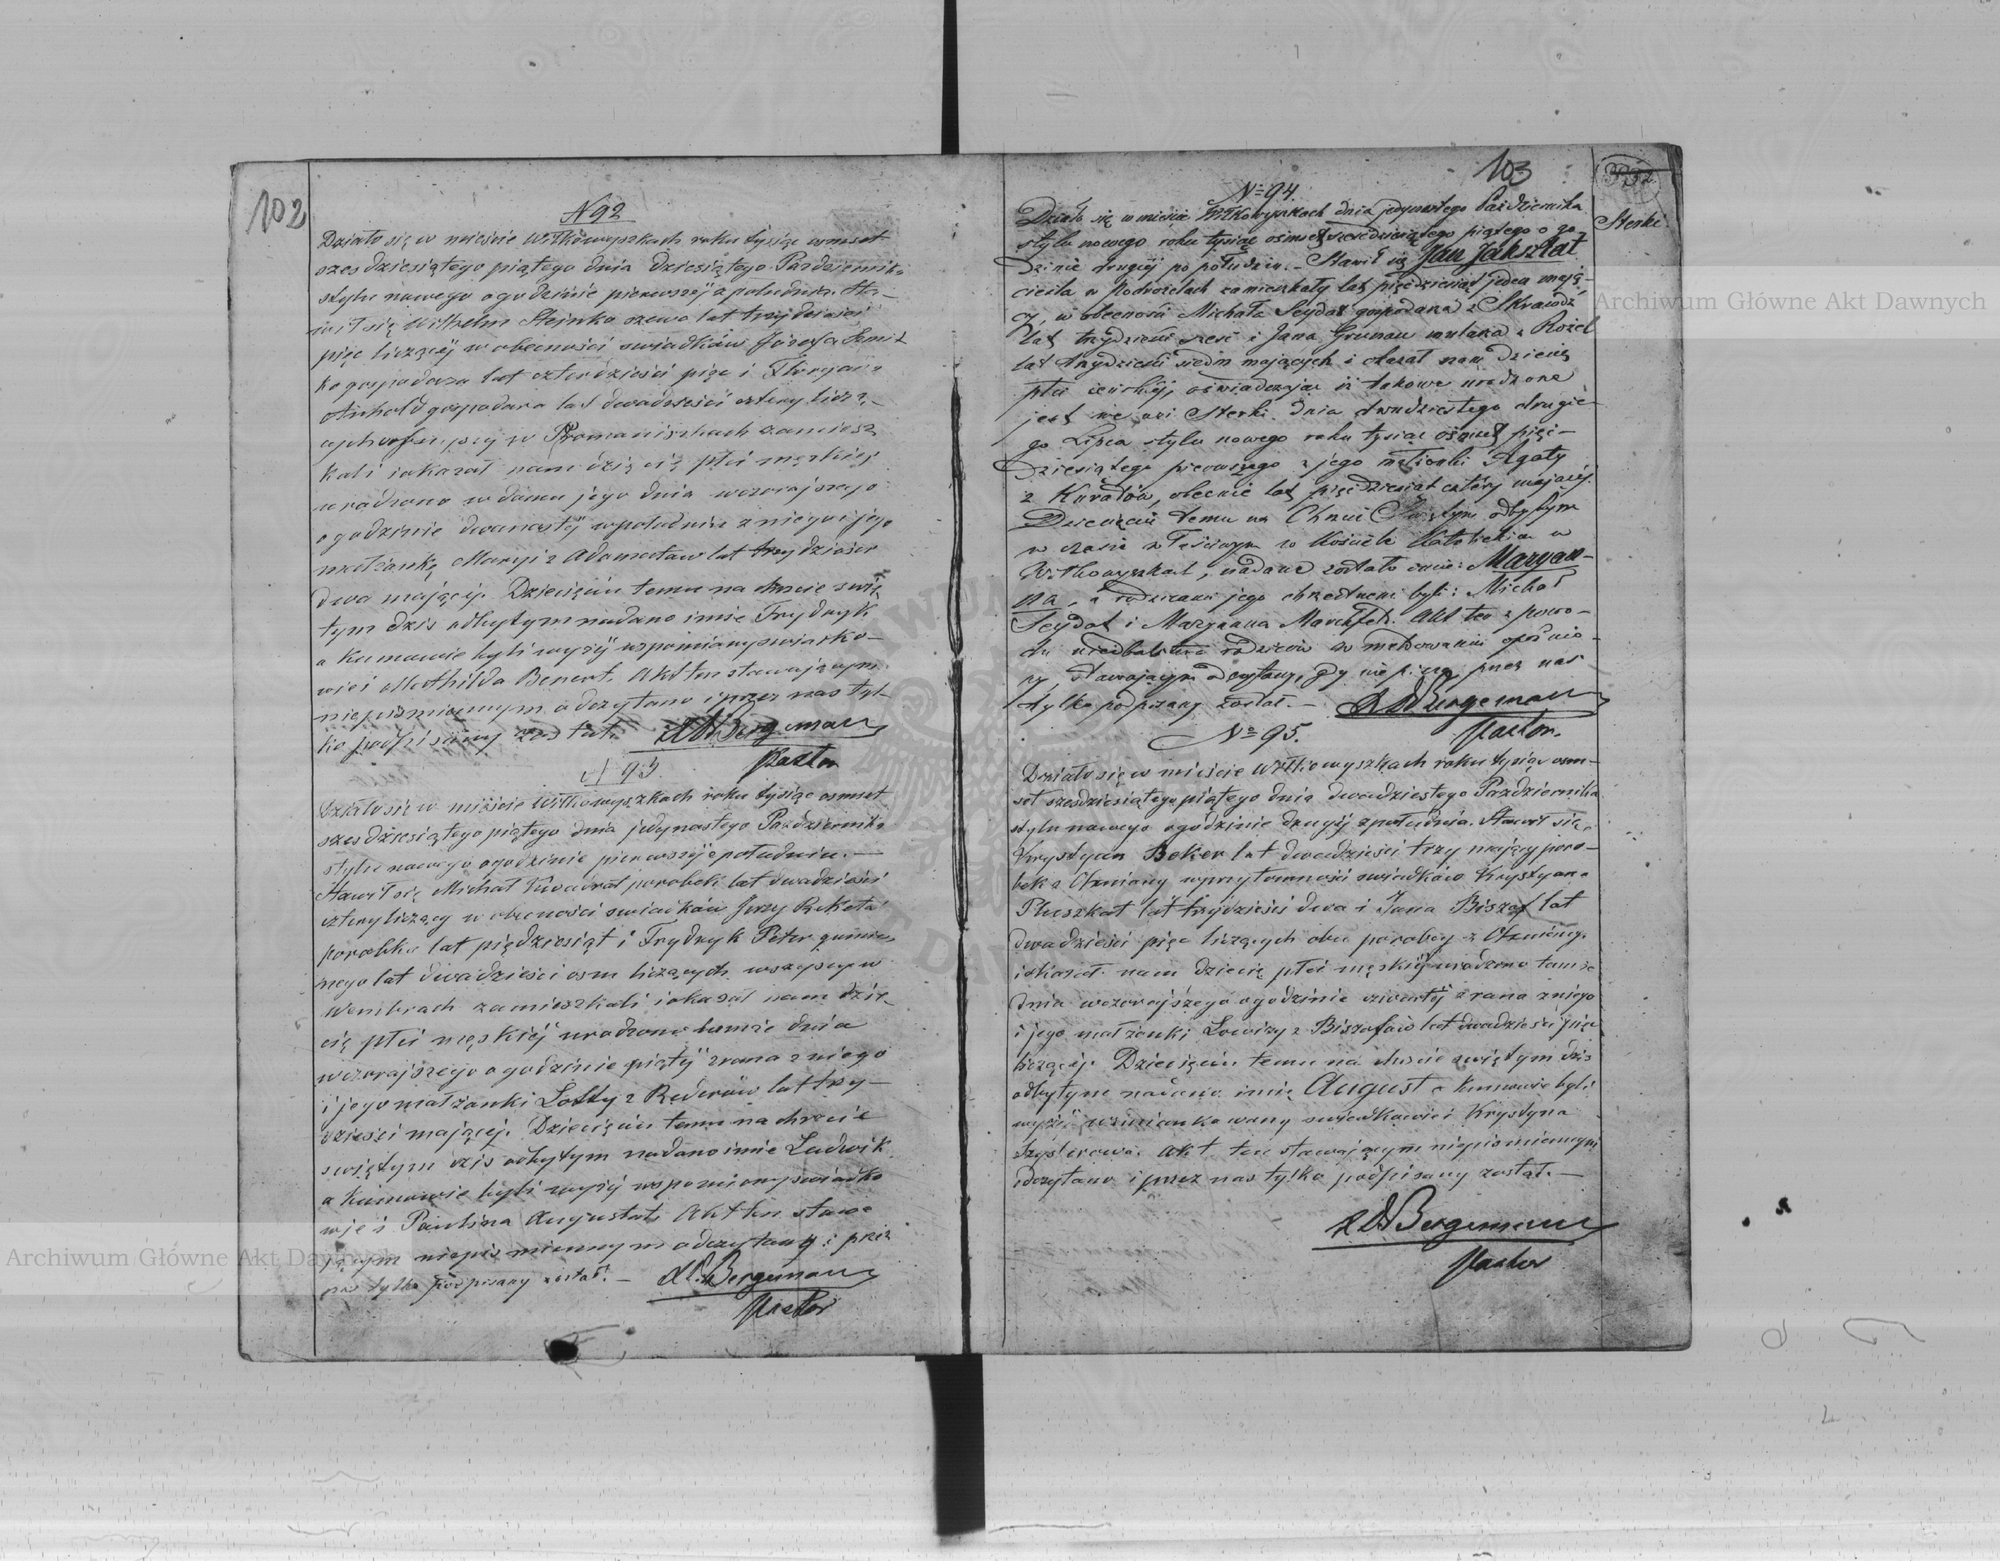 102
N 92
Działo się w mieście Wiłkowyszkach roku tysiąc osmset
szesdziesiątego piątego dnia dziesiątego Pazdziernika
stylu nowego o godzinie pierwszej z południa. Sta-
wił się Wilhelm Stejnke szewc lat trzydzieści
pięc liczący w obecności swiadków Józefa Szmit
ke gospodarza lat czterdzieści pięc i Floryana
gospodara lat dwadzieści cztery liczą-
cych w Romaniszkach zamiesz
kali i okazał nam dziecię płci męzkiej
urodzone w domu jego dnia wczorajszego
o godzinie dwanastej w południe z niego i jego
małżanki Maryi z Adametow lat trzydzieści
dwa mającej. Dziecięciu temu na chrzcie swię
tym dzis odbytym nadano imie Frydryk
a Kumowie byli wyżej wspomiany swiatko-
wie i Mathilda Benert. Akt ten stawającym
niepismiennym odczytano i przez nas tyl-
ko podpisany został. Bergemann
Pastor
N 93
Działo się w mieście Wiłkowyszkach roku tysiąc osmset
szesdziesiątego piątego dnia jedynastego Pazdziernika
stylu nowego o godzinie pierwszej z południa. —
Stawił się Michał Kwadrat parobek lat dwadzieści
cztery liczący w obecności swiadków Jerzy Rekota
parobka lat pięćdziesiąt i Frydryk Peter gumien
nego lat dwadzieści osm liczących wszyscy w
Wembrach zamieszkali i okazał nam dzie-
cię płci męskiej urodzone tamże dnia
wczorajszego o godzinie piątej zrana z niego
i jego małżanki Lotty z Rederów lat trzy-
dzieści mającej. Dziecięciu temu na chrzcie
swiętym dzis odbytym nadano imie Ludwik
a Kumowie byli wyżej wspomiony swiadko
wie i Paulina Augustat. Akt ten stawa
jącym niepismiennym odczytany i przez
nas tylko podpisany został. — Bergemann
Pastor
103
Sterki
N= 94.
Działo się w mieście Wiłkowyszkach dnia jedynastego Października
stylu nowego roku tysiąc ośmset sześćdziesiątego piątego o go-
dzinie drugiej po południu. – Stawił się Jan Jaksztat
cieśla w Podworelach zamieszkały lat pięćdziesiąt jeden mają-
cy, w obecności Michała Seydat gospodarza z Skrawdz
lat trzydzieści sześć i Jana Grunau z Rożel
lat trzydzieści siedm mających i okazał nam dziecię
płci żeńskiej, oświadczając iż takowe urodzone
jest we wsi Sterki dnia dwudziestego drugie-
go Lipca stylu nowego roku tysiąc ośmset pięć-
dziesiątego pierwszego z jego małżonki Agaty
z Kuratów, obecnie lat pięćdziesiąt cztery mającej.
Dziecięciu temu na Chrzcie Świętym odbytym
w czasie właściwym w Kościele Katolickim w
Wiłkowyszkach, nadane zostało imie: Maryan-
na, a rodzicami jego chrzestnemi byli: Michał
Seydat i Maryanna. Akt ten z powo-
du niedbalstwa rodziców w meldowaniu opóźnio-
ny, stawającym odczytany, gdy nie piszą przez nas
tylko podpisany został. — Bergemann
Pastor.
N= 95.
Działo się w mieście Wiłkowyszkach roku tysiąc osm-
set szesdziesiątego piątego dnia dwudziestego Pazdziernika
stylu nowego o godzinie drugiej z południa. Stawił się
Krystyan Beker lat dwadzieści trzy mający paro-
bek z Ożniany w przytomności swiadków Krystyana
Pluszkat lat trzydzieści dwa i Jana Biszof lat
dwadzieści pięc liczących obu parobcy z
i okazał nam dziecię płci męskiej urodzone tamże
dnia wczorajszego o godzinie czwartej z rana z niego
i jego małżanki Lowizy z Biszofów lat dwadzieścia pięc
liczącej. Dziecięciu temu na chrzcie swiętym dzis
odbytym nadano imię August a Kumowie byli
wyżej wzmiankowany swiadkowie i Krystyna
Akt ten stawającym niepismiennym
odczytano i przez nas tylko podpisany został. —
Bergemann
Pastor
Archiwum Główne Akt Dawnych
Archiwum Główne Akt Dawnych